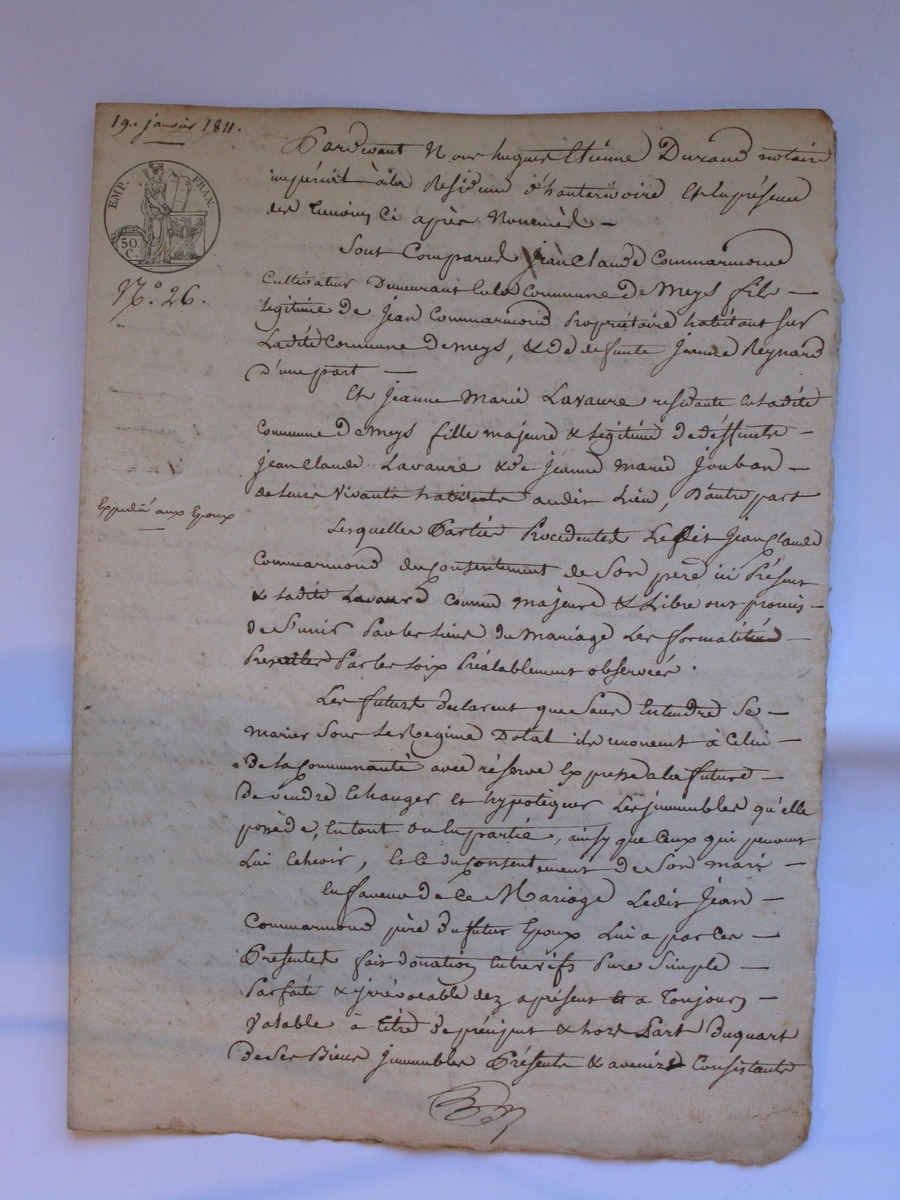 19. janvier 1811.
EMP. FRAN.
50. C.
N.° 26.
Expedié aux Epoux
Pardevant Nous hugues Etienne Durand notaire
imperial à la Residence d'hauterivoire Et En présence
des temoins Ci après Nommés –
Sont Comparus Jean Claude Commarmond
Cultivateur Demeurant En la Commune De Meys fils –
legitime De Jean Commarmond Propriétaire habitant sur
Ladite Commune De meys, & de defunte Jeanne Reynard
D'une part –
Et Jeanne Marie Lavaure residante En ladite
Commune De Meys fille majeure & legitime De deffunts –
jean Claude Lavaure & de jeanne marie Jouban –
de leur Vivants habitants audit Lieu, D'autre part
Lesquelles Parties Procedentes Ledit Jean Claude
Commarmond du Consentement de Son pere ici Présent
& ladite Lavaure Comme majeure & Libre ont promis –
de S'unir Par les liens du Mariage Les formalités –
Prescrites Par les loix Préalablement observées.
Les futurs declarent que Sans Entendre Se –
marier Sous le Regime Dotal ils renoncent à Celui –
De la Communauté avec réserve Expresse a la future –
De vendre Echanger et hypotequer Les immeubles qu'elle
posséde, En tout Ou En partie, ainsy que Ceux qui peuvent
Lui Echeoir, le du Consentement de Son mari –
En faveur de Ce Mariage Ledit Jean –
Commarmond père Du futur Epoux Lui a par Ces –
Presentes fait donation Entrevifs Pure Simple –
Parfaite & irrévocable dez apresent et a Toujours –
Valable à titre De préciput & hors Part Du quart
De Ses Biens immeubles Présents & avenirs Consistants